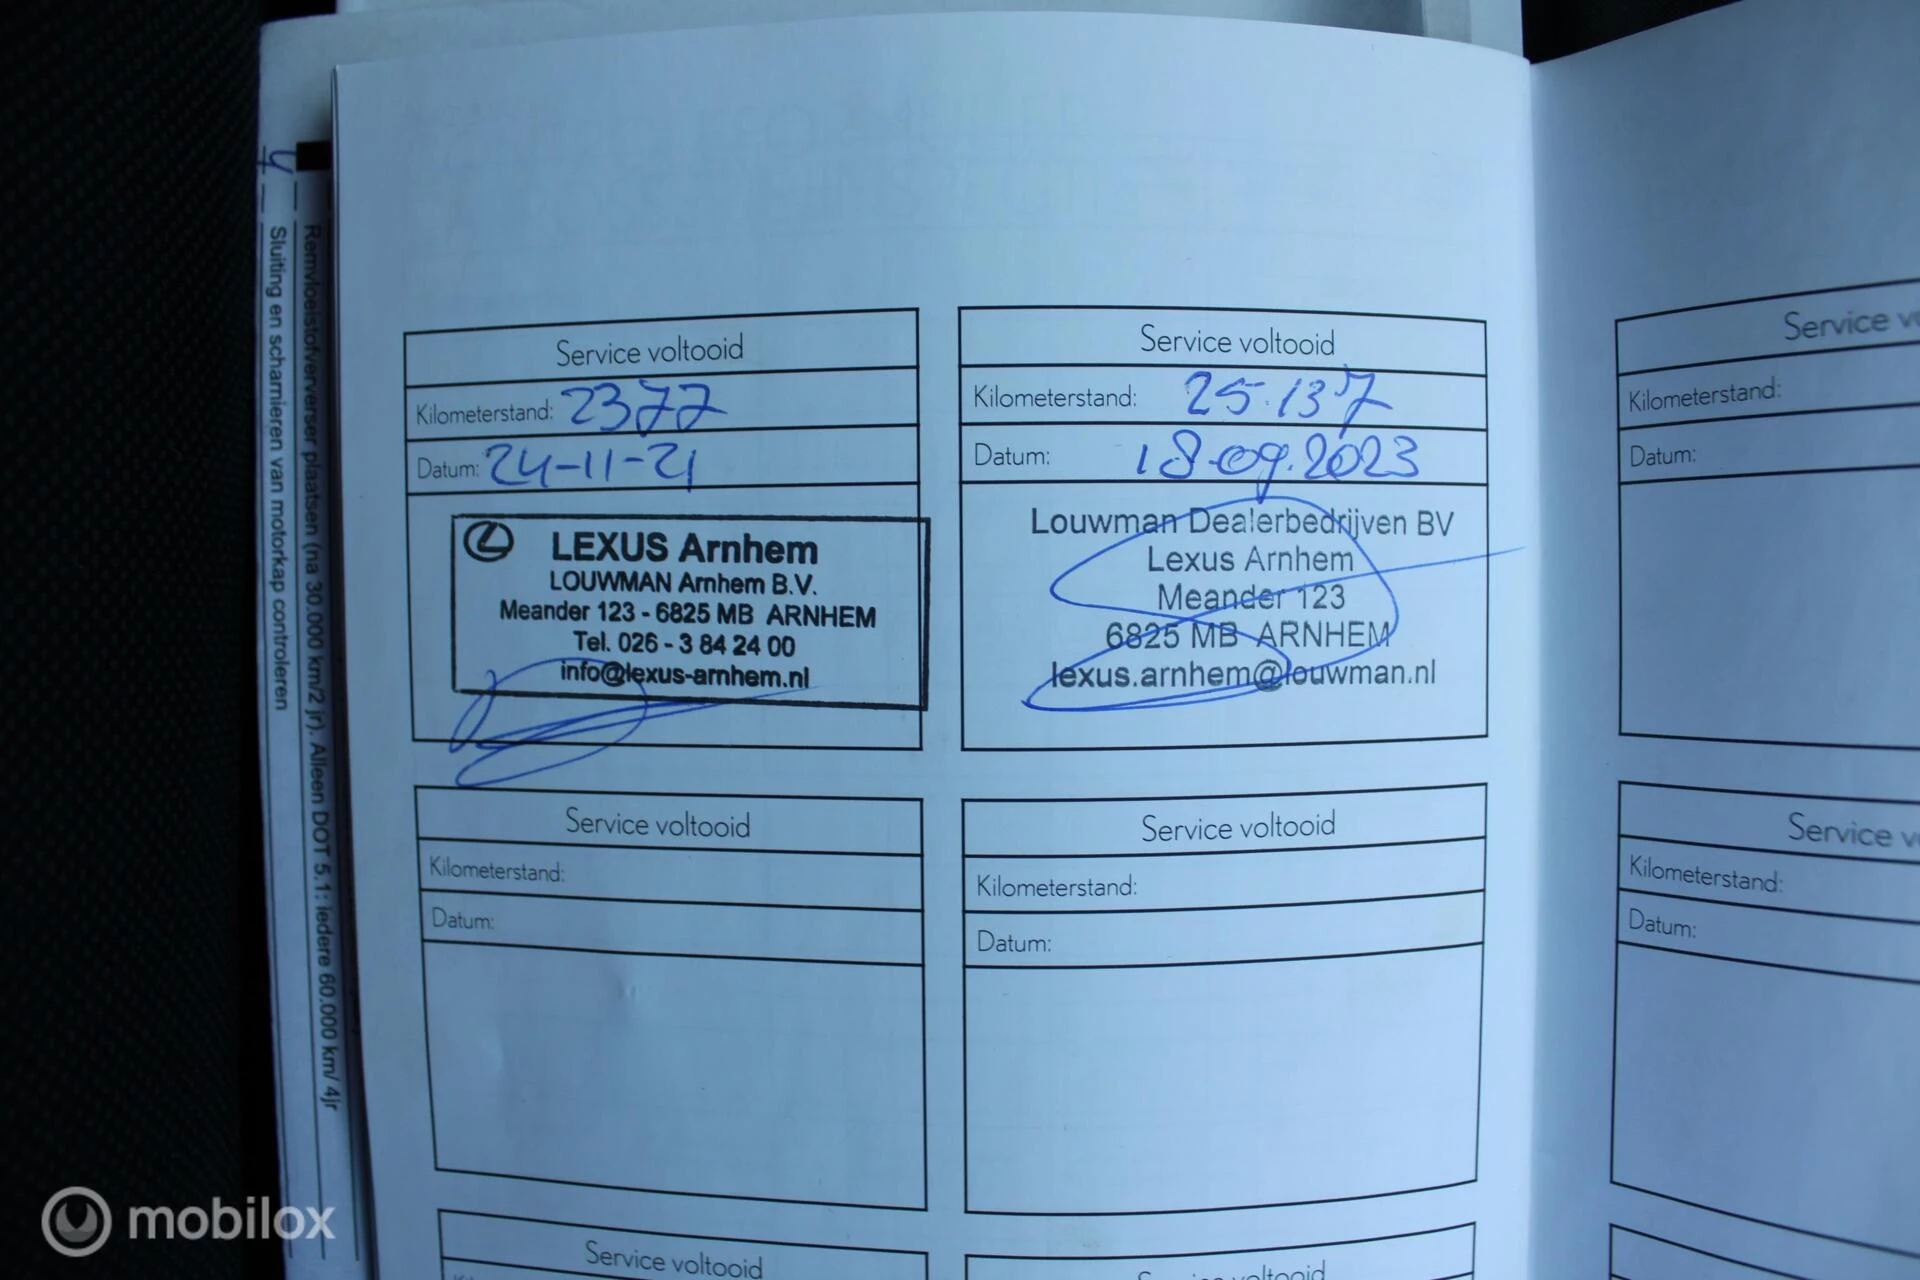 Service voltooid
Kilometerstand: 2377
Datum: 24-11-21
LEXUS Arnhem
LOUWMAN Arnhem B.V.
Meander 123 - 6825 MB ARNHEM
Tel. 026 - 3 84 24 00
info@lexus-arnhem.nl
Service voltooid
Kilometerstand: 25.137
Datum: 18.09.2023
Louwman Dealerbedrijven BV
Lexus Arnhem
Meander 123
6825 MB ARNHEM
lexus.arnhem@louwman.nl
Service
Kilometerstand:
Datum:
Service voltooid
Kilometerstand:
Datum:
Service voltooid
Kilometerstand:
Datum:
Service
Kilometerstand:
Datum:
Service voltooid
Service voltooid
Remvloeistofververser plaatsen (na 30.000 km/2 jr). Alleen DOT 5.1: Iedere 60.000 km/ 4jr
Sluiting en scharnieren van motorkap controleren
mobilox